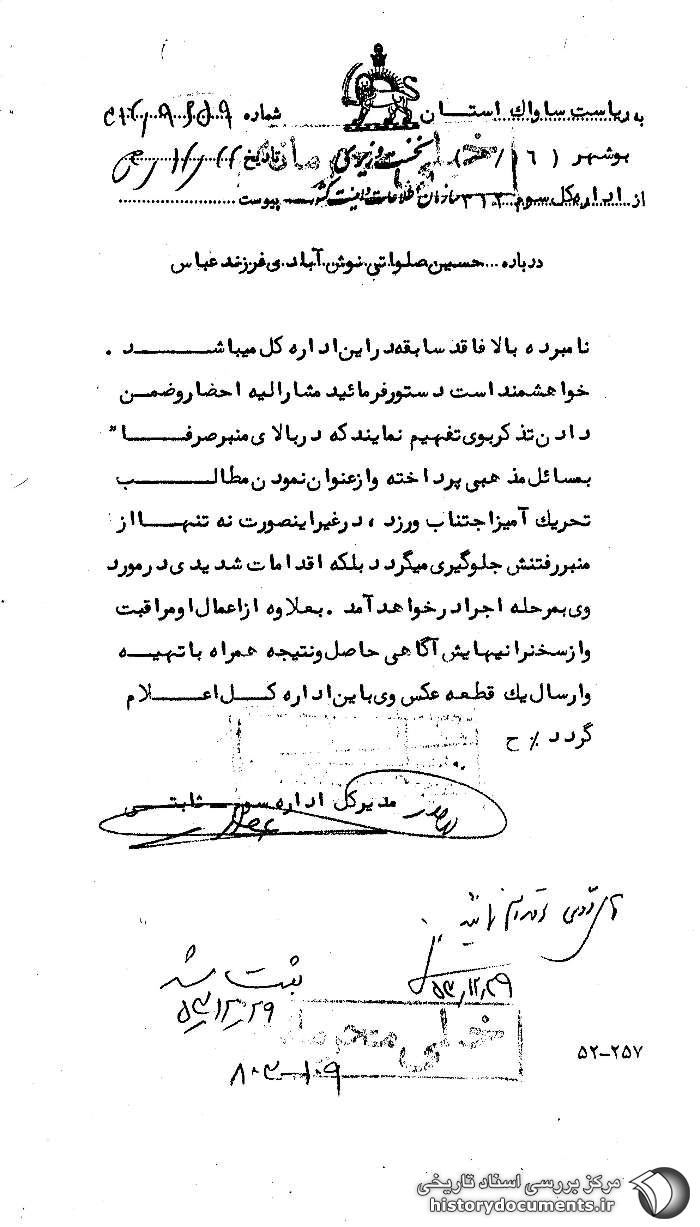 به ریاست ساواك استان شماره
بوشهر (۱۶/ه) نخست وزیری تاریخ
خیلی محرمانه
از اداره کل سوم ۳۱۲ سازمان اطلاعات و امنیت کشور پیوست
درباره حسین صلواتی نوش آبادی فرزند عباس
نامبرده بالا فاقد سابقه در این اداره کل میباشد .
خواهشمند است دستور فرمائید مشارالیه احضار و ضمن
دادن تذکر بوی تفهیم نمایند که در بالای منبر صرفا"
بمسائل مذهبی پرداخته و از عنوان نمودن مطالب
تحریك آمیز اجتناب ورزد ، در غیر اینصورت نه تنها از
منبر رفتنش جلوگیری میگردد بلکه اقدامات شدیدی در مورد
وی بمرحله اجرا در خواهد آمد . بعلاوه از اعمال او مراقبت
و از سخنرانیهایش آگاهی حاصل و نتیجه همراه با تهیه
و ارسال یك قطعه عکس وی باین اداره کل اعلام
گردد ٪ ح
مدیر کل اداره سوم – ثابتی
اقدام نمائید
۵۳/۱۲/۲۹
ثبت شد
۵۳/۱۲/۲۹
خیلی محرمانه
۸۰۳-۱۰۹
۵۲-۲۵۷
مرکز بررسی اسناد تاریخی
historydocuments.ir